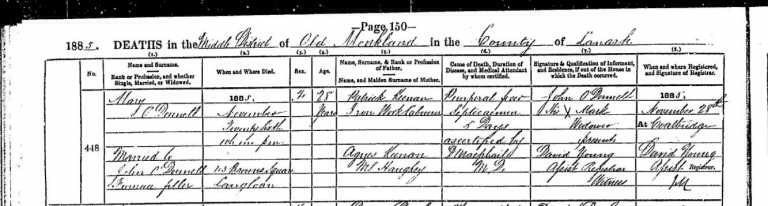 —Page 150—
1885. DEATHS in the Middle District of Old Monkland in the County of Lanark
(1.) (2.) (3.) (4.) (5.) (6.) (7.) (8.)
No.
Name and Surname.
Rank or Profession, and whether Single, Married, or Widowed.
When and Where Died.
Sex.
Age.
Name, Surname, & Rank or Profession of Father.
Name, and Maiden Surname of Mother.
Cause of Death, Duration of Disease, and Medical Attendant by whom certified.
Signature & Qualification of Informant, and Residence, if out of the House in which the Death occurred.
When and where Registered, and Signature of Registrar.
448
Mary
O'Donnell
Married to
John O'Donnell
Furnace filler
1885.
November
Langloan
F
28
Years
Patrick Keenan
Iron Work Labourer
Agnes Keenan
M.S.
Puerperal fever
Septicaemia
5 Days
as certified by
M.D.
John O'Donnell
His X Mark
Widower
(Present)
David Young
Assist Registrar
Witness
1885.
November 28th
At Coatbridge
David Young
Assist Registrar.